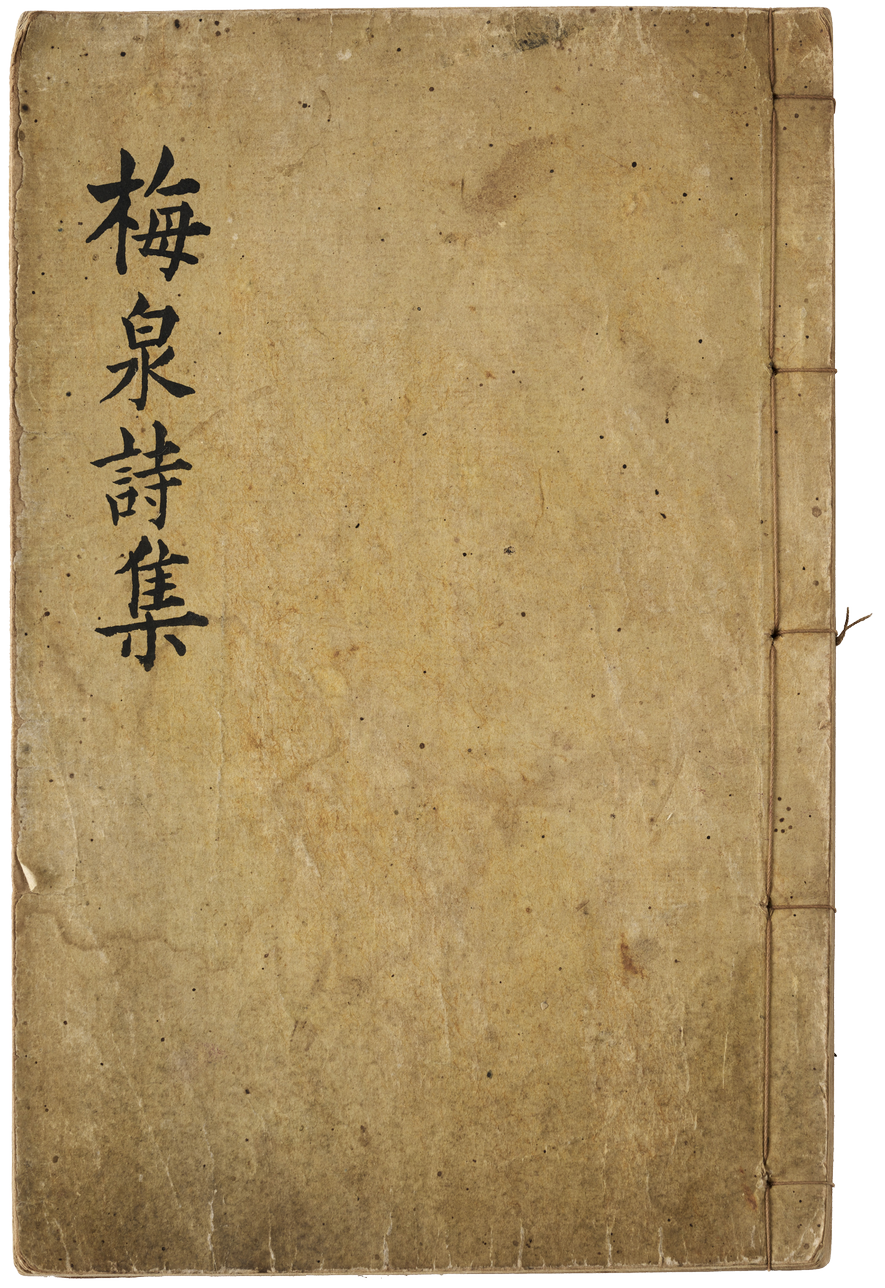 梅泉詩集